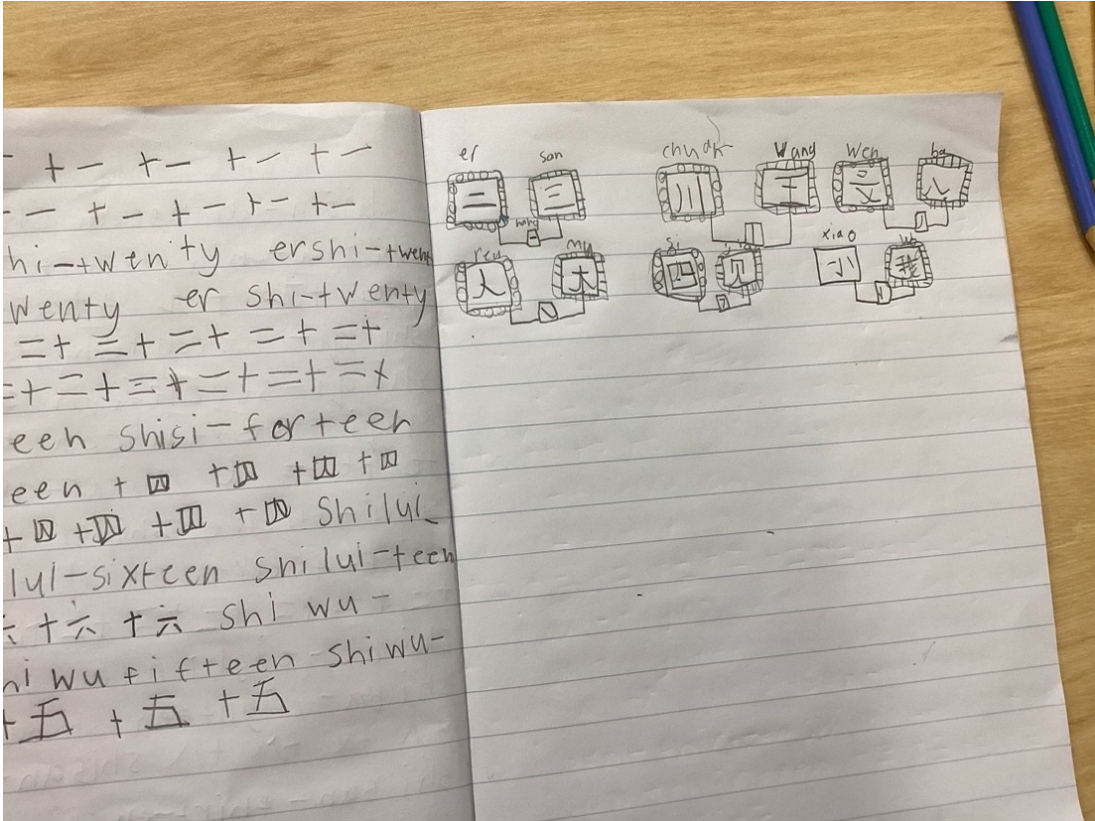 一 十一 十一 十一 十一
一 十一 十一 十一 十一
hi-twenty ershi-twent
wenty er shi-twenty
二十 二十 二十 二十 二十
二十 二十 二十 二十 二十 二十
een shisi-forteen
een 十四 十四 十四 十四
十四 十四 十四 十四 shilui
lui-sixteen shilui-teen
六 十六 十六 shi wu-
hi wu fifteen shiwu-
十五 十五 十五
er san Wang Wen ba
二 三 川 王 八
ren mu si xiao wo
人 木 四 见 小 我